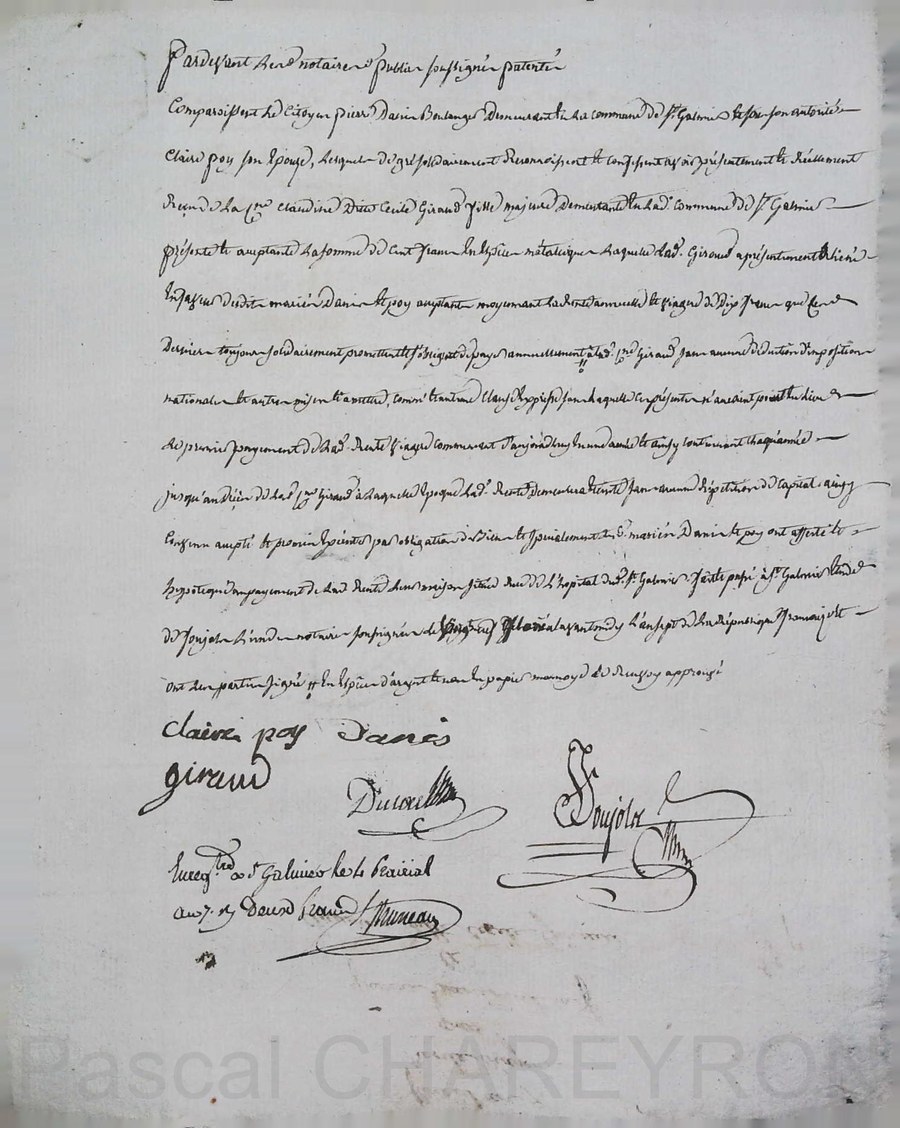 Pardevant les notaires publics soussignés patentés
Comparoissent le Citoyen pierre Danis Boulanger Demeurant en la commune de St Galmier & de son autorité
Claire poy son Epouse, lesquels de gré solidairement Reconnoissent & confessent avoir présentement & Réellement
Reçu de la Cne Claudine Dite Cecile Giraud fille majeure Demeurante en lad. Commune de St Galmier
présente & acceptante la somme de Cent francs En Espèces métalliques laquelle lad. Giraud a présentement
En faveur desdits mariés Danis & poy acceptants moyennant la Rente annuelle & viagère de Dix francs que Ces
Derniers toujours solidairement promettent & s'obligent de payer annuellement à lad. Cne Giraud sans aucune déduction d'imposition
nationale & autres mises & à mettre, comme étant une Clause Expresse sans laquelle Ces présentes n'auroient point Eu lieu
le premier payement de lad. Rente viagère commencera d'aujourd'huy en une année & ainsy continuera chaque année
jusqu'au Décès de lad. Cne Giraud à laquelle Epoque lad. Rente Demeurera Eteinte sans aucune Répétition de Capital, ainsy
Convenu accepté & promis Exécuter par obligation de Biens & spécialement lesd. mariés Danis & poy ont affecté &
hypotéqué au payement de lad. Rente leur maison située Rue de l'hopital dud. St Galmier. fait & passé à St Galmier Etude
de Ponjole l'un des notaires soussignés le floréal avant midy l'an sept de la République française &
ont les parties signé // En Espèces d'argent & non En papier monnoye
Claire poy Danis
giraud
Ponjole
Enregtré à St Galmier le 4 Prairial
an 7. Rç Deux francs Bruneau
Pascal CHAREYRON